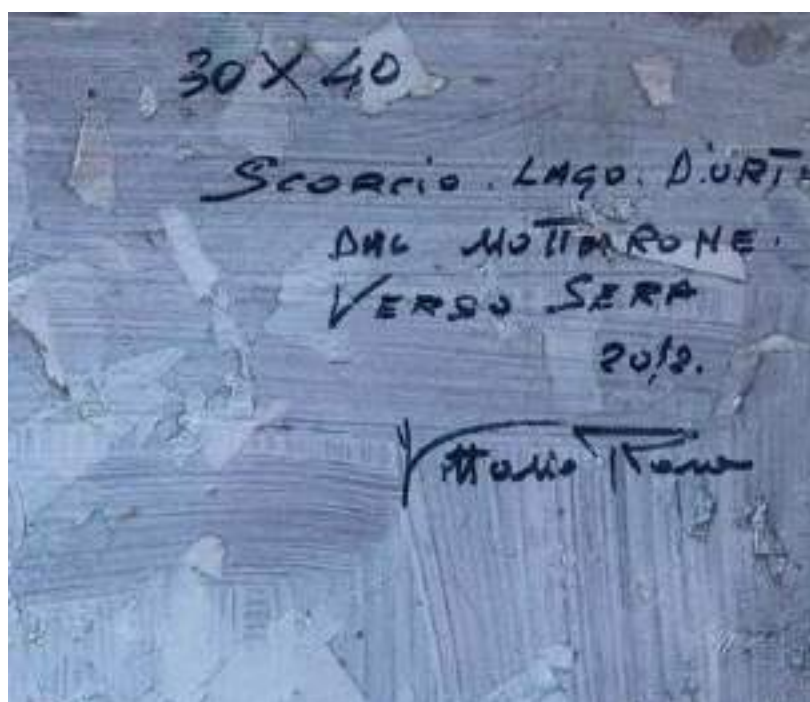 30 X 40
SCORCIO. LAGO. D'ORT
DAL MOTTARONE.
VERSO SERA
2012.
Vittorio